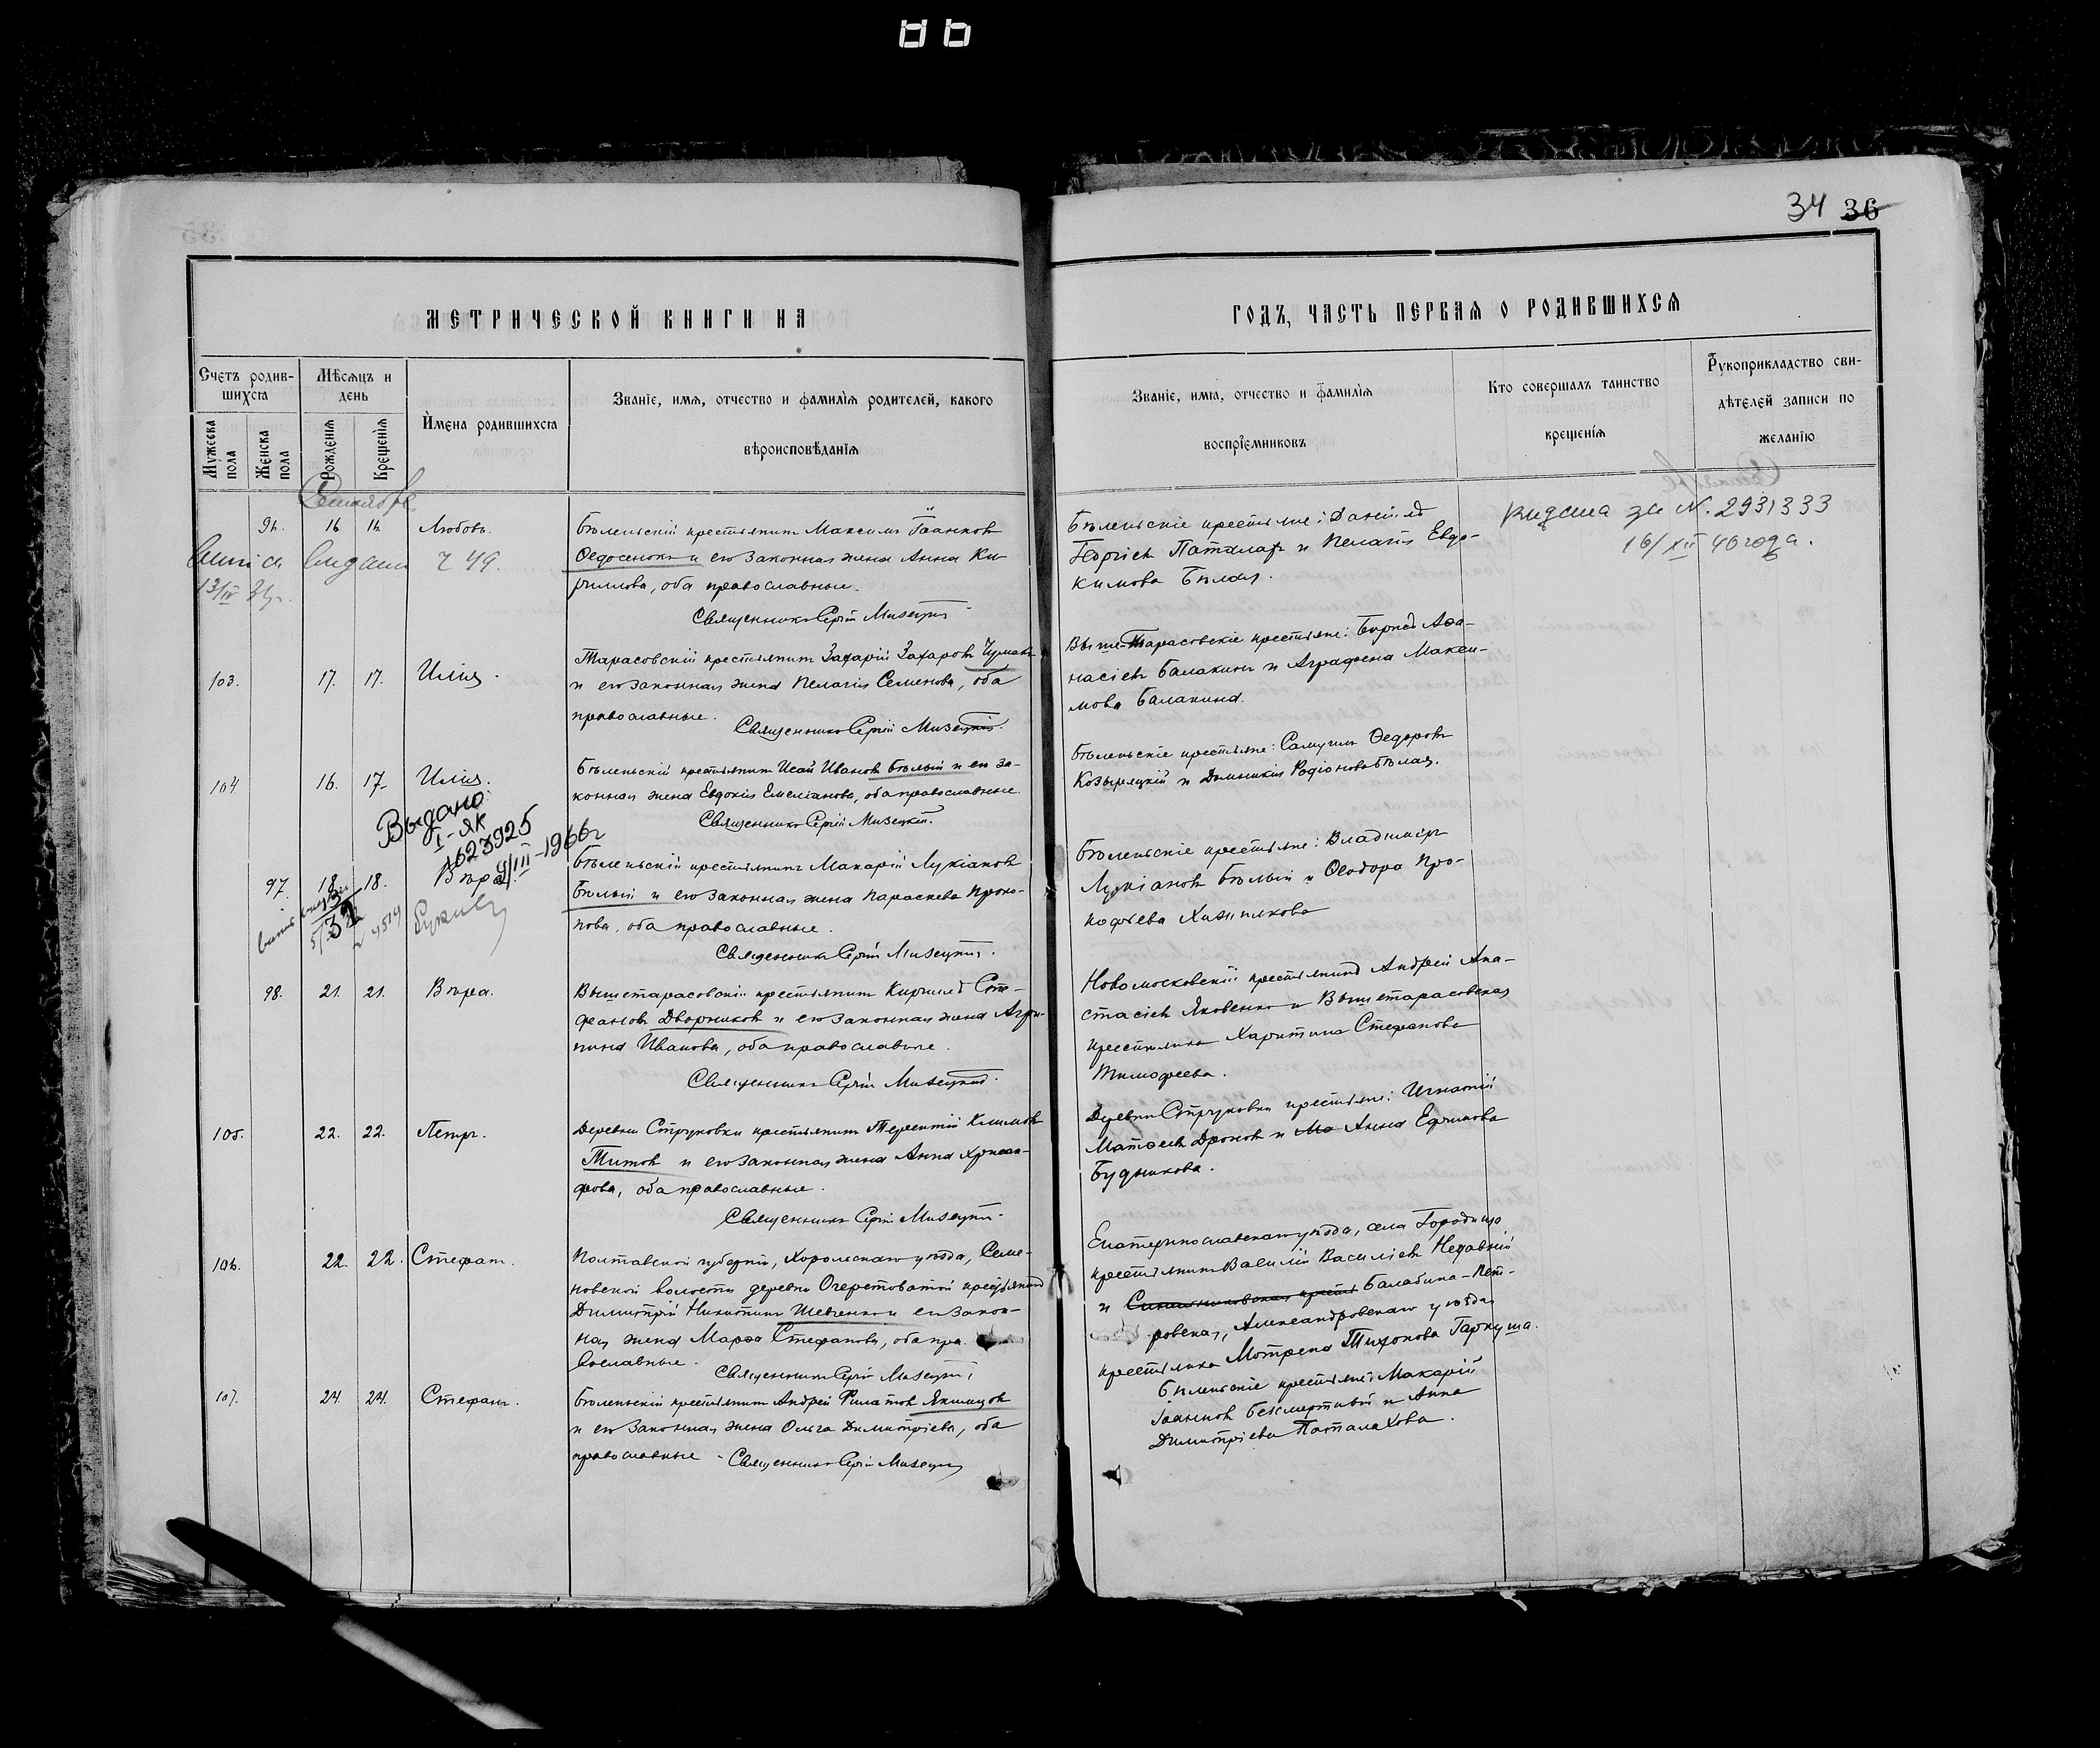 34 36
МЕТРИЧЕСКОЙ КНИГИ НА
ГОДЪ, ЧАСТЬ ПЕРВАЯ О РОДИВШИХСЯ
Счетъ родив-
шихся
Мѣсяцъ и
день
Мужеска пола
Женска пола
Рожденія
Крещенія
Имена родившихся
Званіе, имя, отчество и фамилія родителей, какого
вѣроисповѣданія
Званіе, имя, отчество и фамилія
воспріемниковъ
Кто совершалъ таинство
крещенія
Рукоприкладство сви-
дѣтелей записи по
желанію
Сентябрь
96. 16 16. Любовь.
Бѣленьскій крестьянинъ Максимъ Іоанновъ
Ѳедосенокъ и его законная жена Анна Ки-
рилова, оба православные.
Священникъ Сергій Мизецкій
Бѣленьскіе крестьяне: Даніилъ
Георгіевъ Паталахъ и Пелагія Евдо-
кимова Бѣлая.
видана за N. 2931333
16/XII 40 года.
видана 249.
13/IV
103. 17. 17. Илія.
Тарасовскій крестьянинъ Захарій Захаровъ Чумакъ
и его законная жена Пелагія Семенова, оба
православные.
Священникъ Сергій Мизецкій.
Выше-Тарасовскіе крестьяне: Борисъ Аѳа-
насіевъ Балакинъ и Аграфена Макси-
мова Балакина.
104. 16. 17. Илія.
Бѣленьскій крестьянинъ Исай Ивановъ Бѣлый и его за-
конная жена Евдокія Емеліанова, оба православные
Священникъ Сергій Мизецкій.
Бѣленьскіе крестьяне: Самуилъ Ѳедоровъ
Козыряцкій и Домникія Родіонова Бѣлая.
Выдано
I-ЯК
№623925
4/III-1966г
97. 18. 18. Вѣра.
Бѣленьскій крестьянинъ Макарій Лукіановъ
Бѣлый и его законная жена Параскева Проко-
пова, оба православные.
Священникъ Сергій Мизецкій.
Бѣленьскіе крестьяне: Владиміръ
Лукіановъ Бѣлый и Ѳеодора Про-
кофіева Хижнякова
98. 21. 21. Вѣра.
Вышетарасовскій крестьянинъ Кириллъ Сте-
фановъ Дворниковъ и его законная жена Агри-
пина Иванова, оба православные.
Священникъ Сергій Мизецкій.
Новомосковскій крестьянинъ Андрей Ана-
стасіевъ Яковенко и Вышетарасовская
крестьянка Харитина Стефанова
Тимофеева.
105. 22. 22. Петръ.
Деревни Струковки крестьянинъ Терентій Климовъ
Титовъ и его законная жена Анна Хрисан-
фова, оба православные.
Священникъ Сергій Мизецкій.
Деревни Струковки крестьяне: Игнатій
Матѳеевъ Дроновъ и Ма Анна Ефимова
Будникова.
106. 22. 22. Стефанъ.
Полтавской губерніи, Хорольскаго уѣзда, Семе-
новской волости деревни Очеретоватой крестьянинъ
Димитрій Никитинъ Шевченко и его закон-
ная жена Марѳа Стефанова, оба пра-
вославные.
Священникъ Сергій Мизецкій,
Екатеринославскаго уѣзда, села Городища
крестьянинъ Василій Василіевъ Недавній
и Синельниковская крест Балабина-Пет-
ровская, Александровскаго уѣзда
крестьянка Мотрена Тихонова Гаркуша.
107. 24. 24. Стефанъ.
Бѣленьскій крестьянинъ Андрей Филатовъ Якимцовъ
и его законная жена Ольга Димитріева, оба
православные. Священникъ Сергій Мизецкій
Бѣленьскіе крестьяне: Макарій
Іоанновъ Безсмертный и Анна
Димитріева Паталахова.